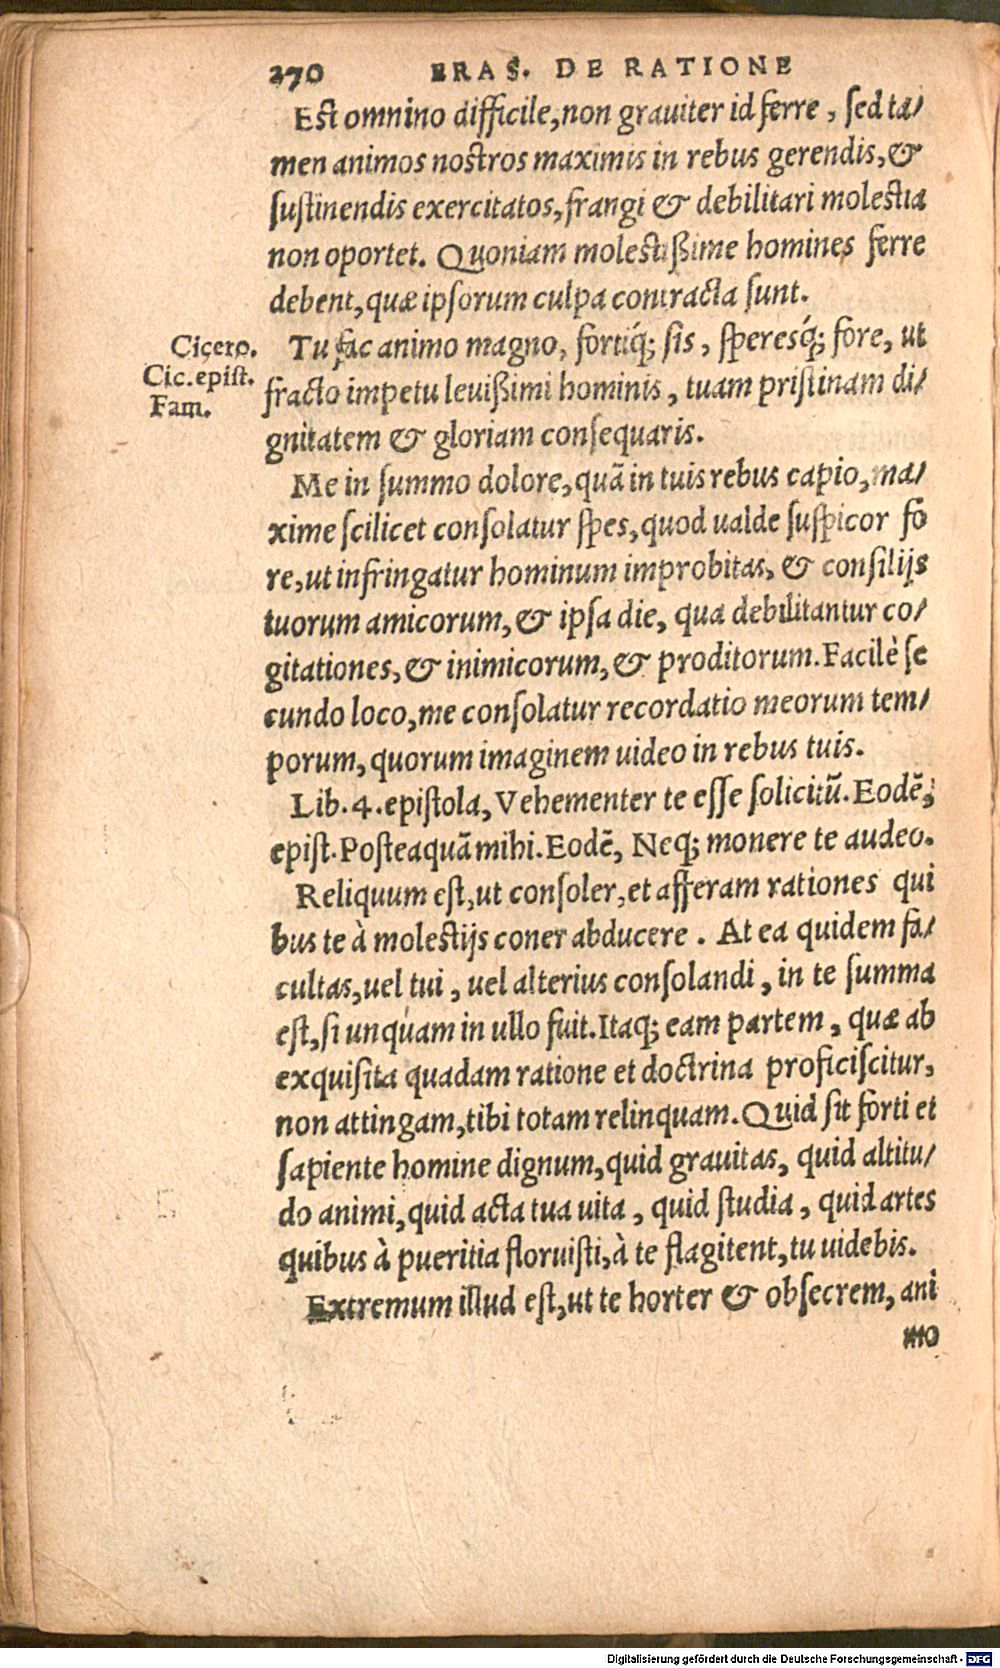 270 ERAS. DE RATIONE
Est omnino difficile, non grauiter id ferre, sed ta/
men animos nostros maximis in rebus gerendis, &
sustinendis exercitatos, frangi & debilitari molestia
non oportet. Quoniam molestißime homines ferre
debent, quæ ipsorum culpa contracta sunt.
Cicero.
Cic. epist.
Fam.
Tu fac animo magno, fortiq́; sis, speresq́; fore, ut
fracto impetu leuißimi hominis, tuam pristinam di/
gnitatem & gloriam consequaris.
Me in summo dolore, quā in tuis rebus capio, ma/
xime scilicet consolatur spes, quod ualde suspicor fo
re, ut infringatur hominum improbitas, & consilijs
tuorum amicorum, & ipsa die, qua debilitantur co/
gitationes, & inimicorum, & proditorum. Facilè se
cundo loco, me consolatur recordatio meorum tem/
porum, quorum imaginem uideo in rebus tuis.
Lib. 4. epistola, Vehementer te esse solicitū. Eodē,
epist. Posteaquā mihi. Eodē, Neq; monere te audeo.
Reliquum est, ut consoler, et afferam rationes qui
bus te à molestijs coner abducere. At ea quidem fa/
cultas, uel tui, uel alterius consolandi, in te summa
est, si unquam in ullo fuit. Itaq; eam partem, quæ ab
exquisita quadam ratione et doctrina proficiscitur,
non attingam, tibi totam relinquam. Quid sit forti et
sapiente homine dignum, quid grauitas, quid altitu/
do animi, quid acta tua uita, quid studia, quid artes
quibus à pueritia floruisti, à te flagitent, tu uidebis.
Extremum illud est, ut te horter & obsecrem, ani
mo
Digitalisierung gefördert durch die Deutsche Forschungsgemeinschaft - DFG